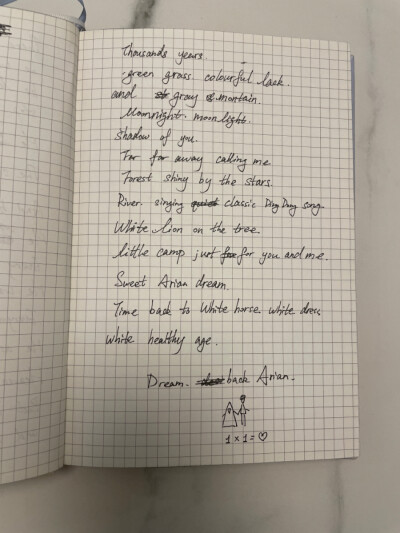 Thousands years.
green grass colourful lack.
and gray montain.
Moonnight. moonlight.
Shadow of you.
Far far away calling me
Forest shiny by the stars.
River singing classic Ding Dang song
White lion on the tree.
little camp just for you and me.
Sweet Arian dream.
Time back to White horse white dress
white healthy age.
Dream back Arian.
1 x 1 = ♡